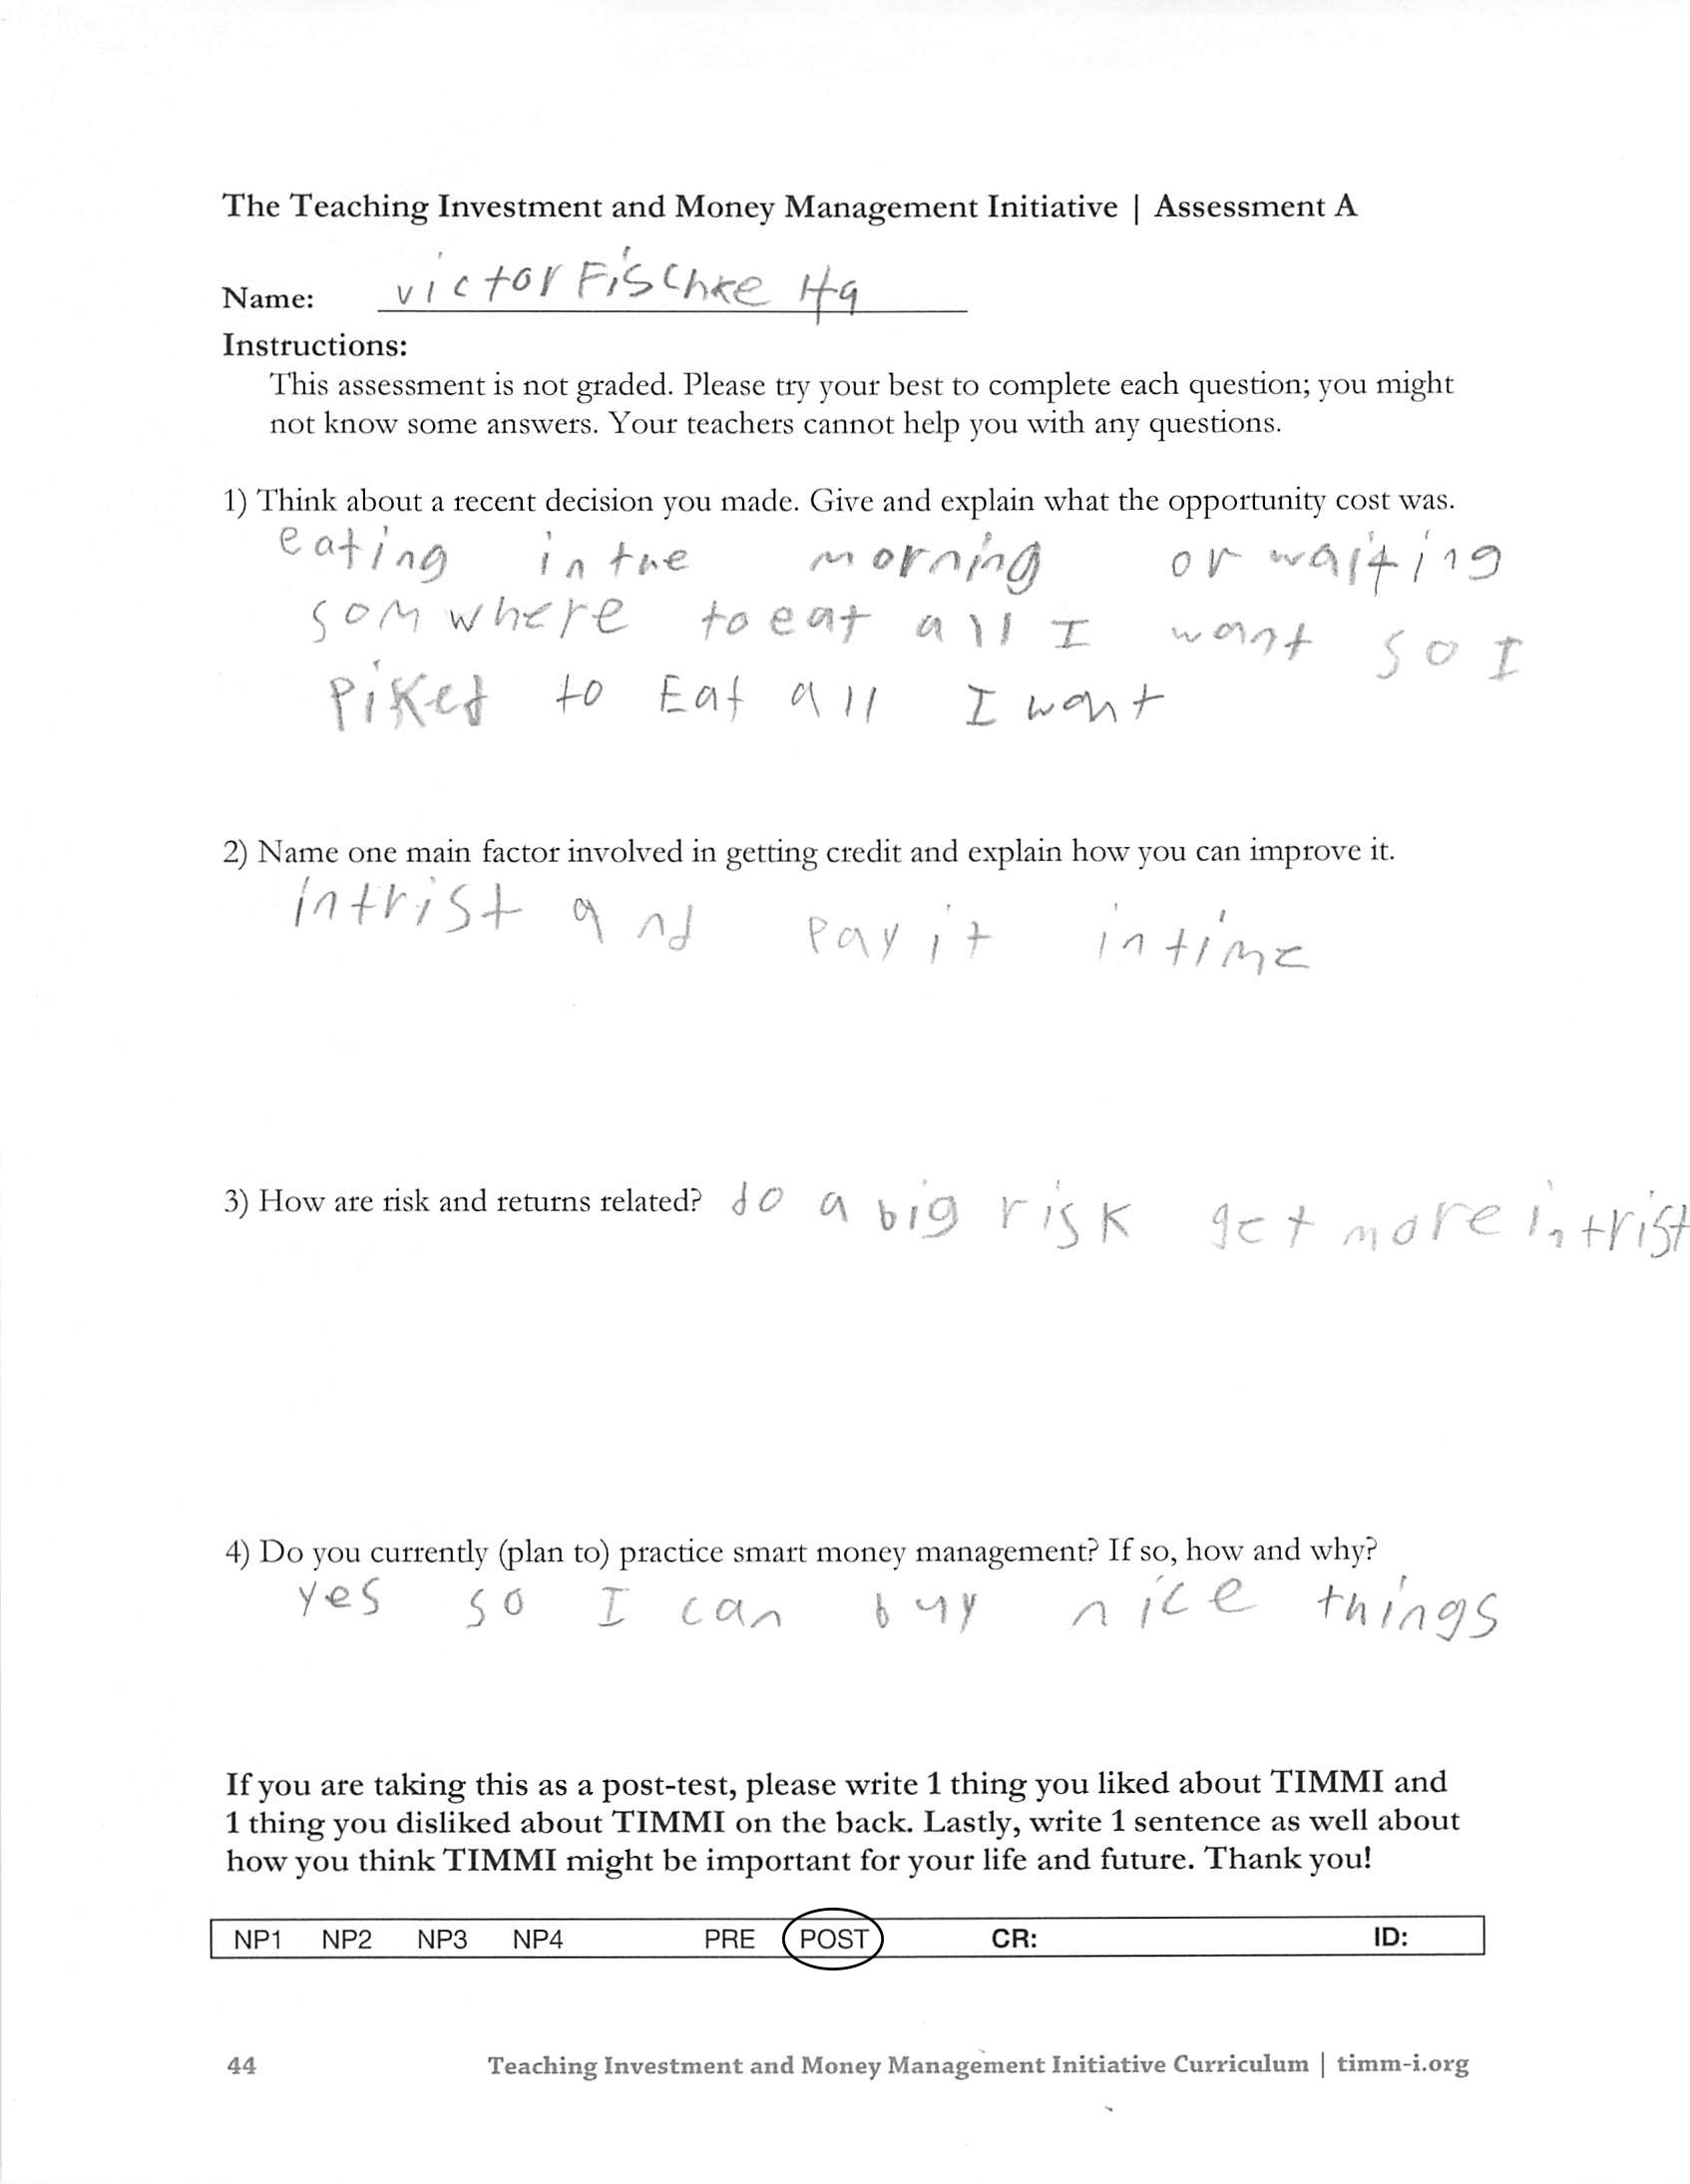 The Teaching Investment and Money Management Initiative | Assessment A
Name: victor Fischke Hq
Instructions:
This assessment is not graded. Please try your best to complete each question; you might
not know some answers. Your teachers cannot help you with any questions.
1) Think about a recent decision you made. Give and explain what the opportunity cost was.
eating in the morning or waiting
som where to eat all I want so I
Piked to Eat all I want
2) Name one main factor involved in getting credit and explain how you can improve it.
intrist and pay it in time
3) How are risk and returns related? do a big risk get more intrist
4) Do you currently (plan to) practice smart money management? If so, how and why?
yes so I can buy nice things
If you are taking this as a post-test, please write 1 thing you liked about TIMMI and
1 thing you disliked about TIMMI on the back. Lastly, write 1 sentence as well about
how you think TIMMI might be important for your life and future. Thank you!
NP1 NP2 NP3 NP4 PRE POST CR: ID:
44 Teaching Investment and Money Management Initiative Curriculum | timm-i.org